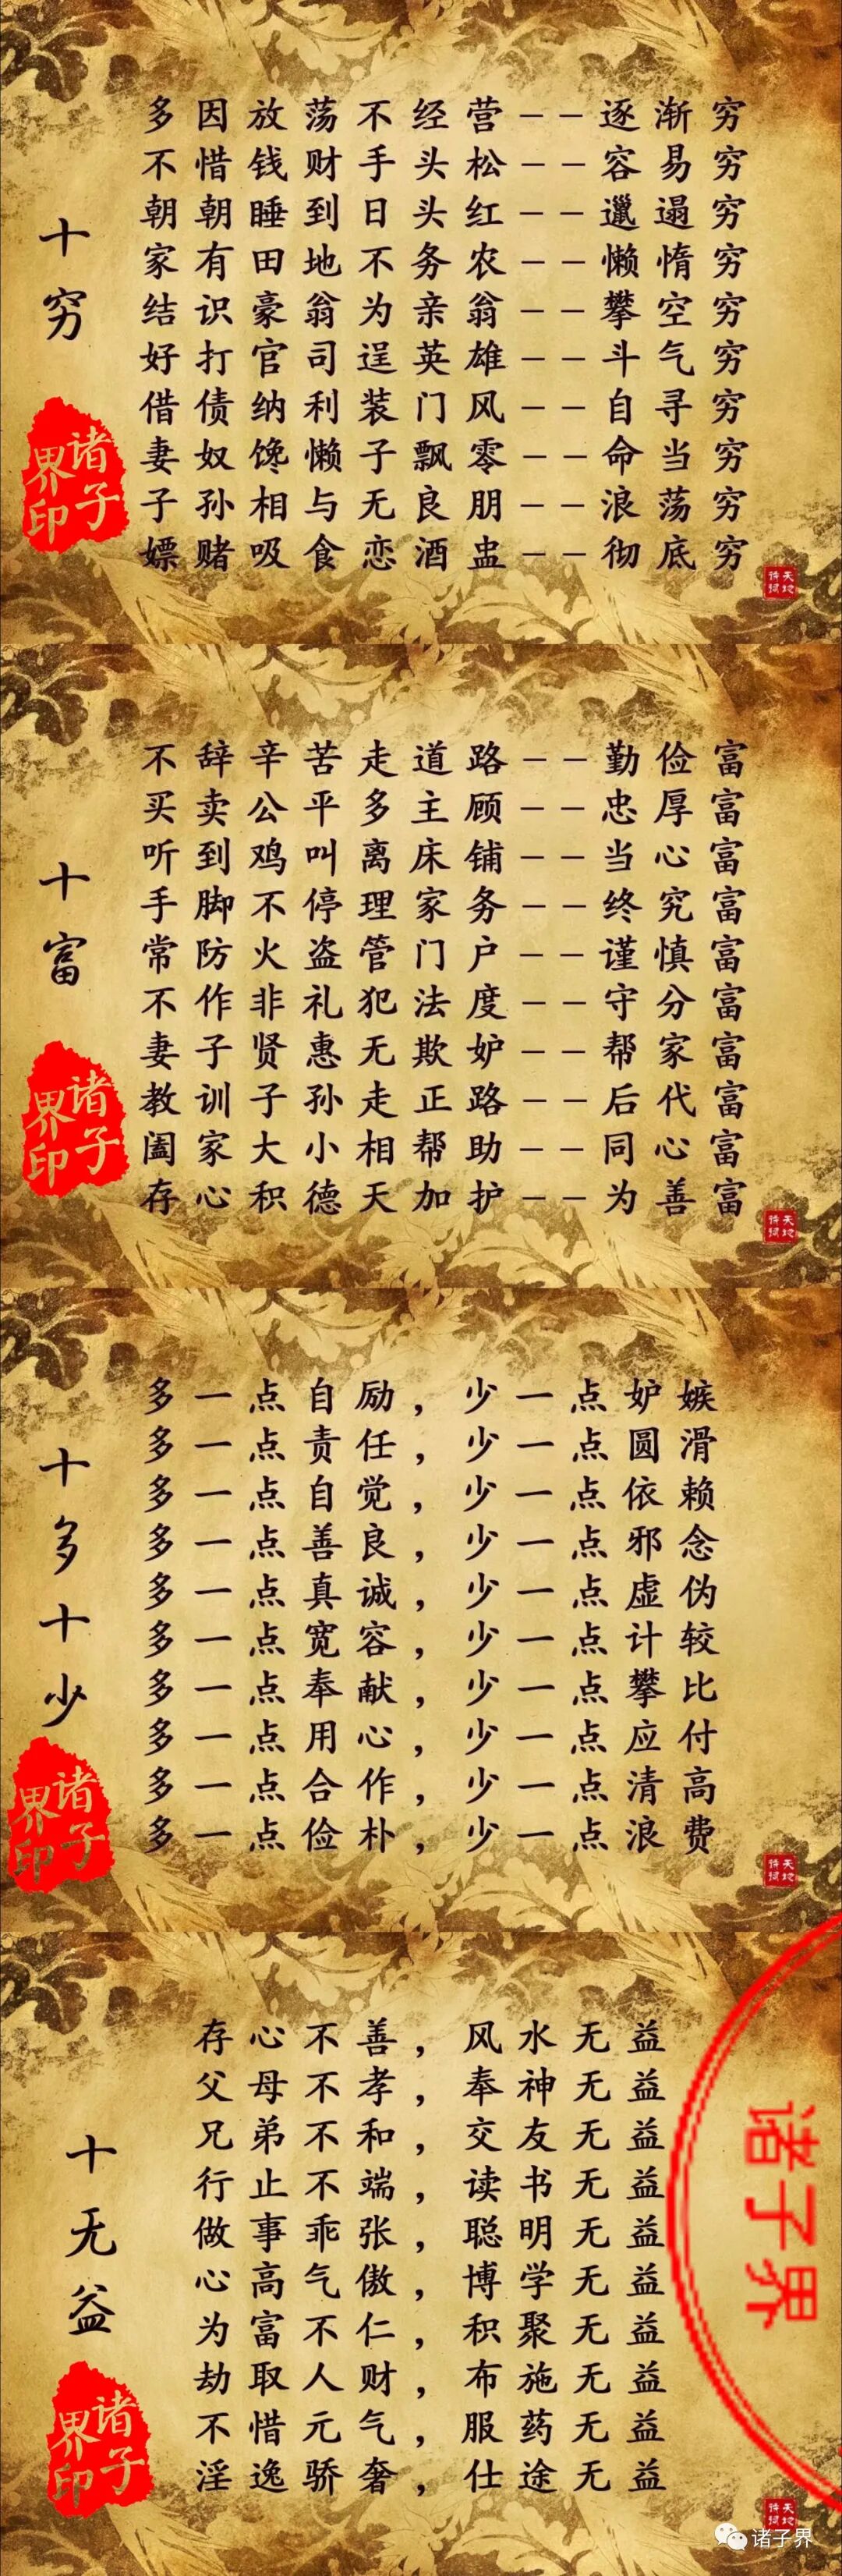 十穷
多因放荡不经营——逐渐穷
不惜钱财手头松——容易穷
朝朝睡到日头红——邋遢穷
家有田地不务农——懒惰穷
结识豪翁为亲翁——攀空穷
好打官司逞英雄——斗气穷
借债纳利装门风——自寻穷
妻奴馋懒子飘零——命当穷
子孙相与无良朋——浪荡穷
嫖赌吸食恋酒盅——彻底穷
诸子界印
天地诗词
十富
不辞辛苦走道路——勤俭富
买卖公平多主顾——忠厚富
听到鸡叫离床铺——当心富
手脚不停理家务——终究富
常防火盗管门户——谨慎富
不作非礼犯法度——守分富
妻子贤惠无欺妒——帮家富
教训子孙走正路——后代富
阖家大小相帮助——同心富
存心积德天加护——为善富
诸子界印
天地诗词
十多十少
多一点自励，少一点妒嫉
多一点责任，少一点圆滑
多一点自觉，少一点依赖
多一点善良，少一点邪念
多一点真诚，少一点虚伪
多一点宽容，少一点计较
多一点奉献，少一点攀比
多一点用心，少一点应付
多一点合作，少一点清高
多一点俭朴，少一点浪费
诸子界印
天地诗词
十无益
存心不善，风水无益
父母不孝，奉神无益
兄弟不和，交友无益
行止不端，读书无益
做事乖张，聪明无益
心高气傲，博学无益
为富不仁，积聚无益
劫取人财，布施无益
不惜元气，服药无益
淫逸骄奢，仕途无益
诸子界印
诸子界
天地诗词
诸子界